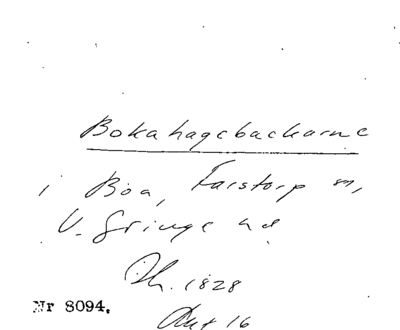 Bokahagebackarne
i Böa, Farstorp sn,
V. Göinge hd
Th. 1828
Nr 8094. Akt 16